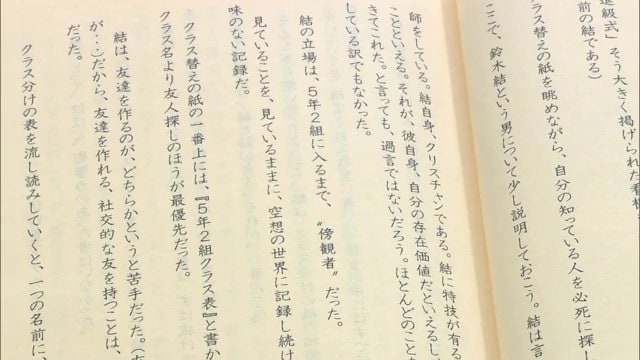 進級式」そう大きく掲げられた看板
前の結である）
クラス替えの紙を眺めながら、自分の知っている人を必死に探し
ここで、鈴木結という男について少し説明しておこう。結は言
師をしている。結自身、クリスチャンである。結に特技が有る
ことといえる。それが、彼自身、自分の存在価値だといえるし、
きてこれた。と言っても、過言ではないだろう。ほとんどのこと
している訳でもなかった。
結の立場は、５年２組に入るまで、〝傍観者〟だった。
見ていることを、見ているままに、空想の世界に記録し続け
味のない記録だ。
クラス替えの紙の一番上には、『５年２組クラス表』と書か
クラス名より友人探しのほうが最優先だった。
結は、友達を作るのが、どちらかというと苦手だった。
が…）だから、友達を作れる、社交的な友を持つことは、
だった。
クラス分けの表を流し読みしていくと、一つの名前に、